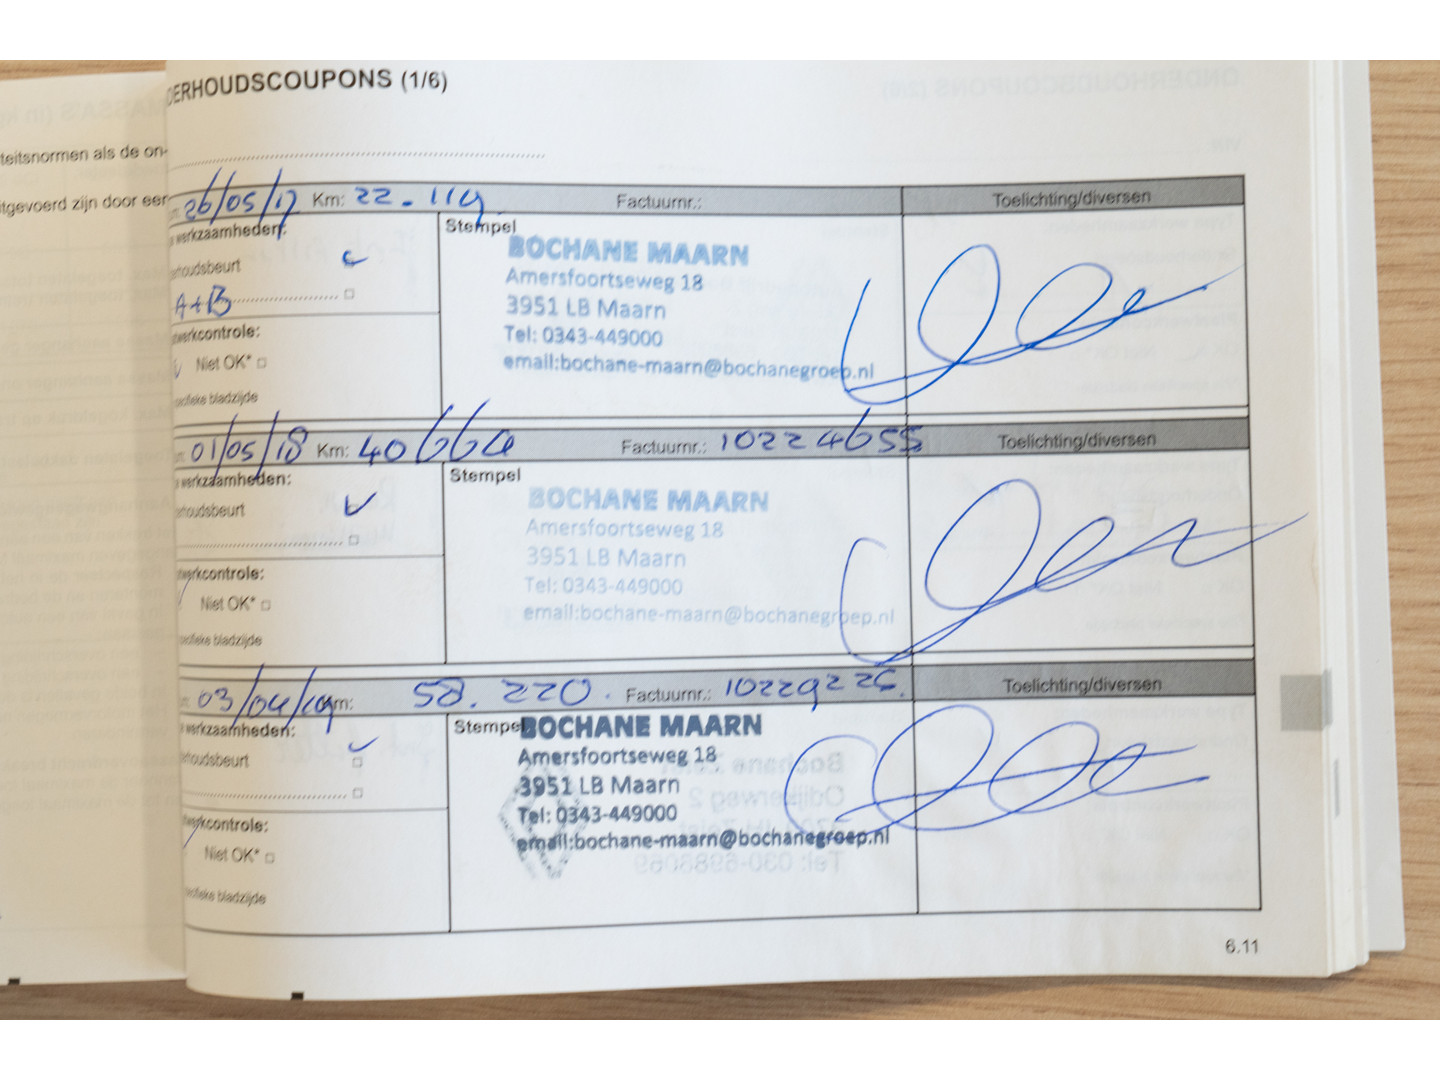 DERHOUDSCOUPONS (1/6)
teitsnormen als de on-
itgevoerd zijn door een
26/05/17 Km: 22.119 Factuurnr.: Toelichting/diversen
werkzaamheden: Stempel
erhoudsbeurt
A+B
BOCHANE MAARN
Amersfoortseweg 18
3951 LB Maarn
Tel: 0343-449000
email:bochane-maarn@bochanegroep.nl
twerkcontrole:
Niet OK*
ecifieke bladzijde
01/05/18 Km: 40664 Factuurnr.: 10224655 Toelichting/diversen
werkzaamheden: Stempel
erhoudsbeurt
BOCHANE MAARN
Amersfoortseweg 18
3951 LB Maarn
Tel: 0343-449000
email:bochane-maarn@bochanegroep.nl
twerkcontrole:
Niet OK*
ecifieke bladzijde
03/04/19 Km: 58.220. Factuurnr.: 10229226. Toelichting/diversen
werkzaamheden: Stempel
erhoudsbeurt
BOCHANE MAARN
Amersfoortseweg 18
3951 LB Maarn
Tel: 0343-449000
email:bochane-maarn@bochanegroep.nl
twerkcontrole:
Niet OK*
ecifieke bladzijde
6.11